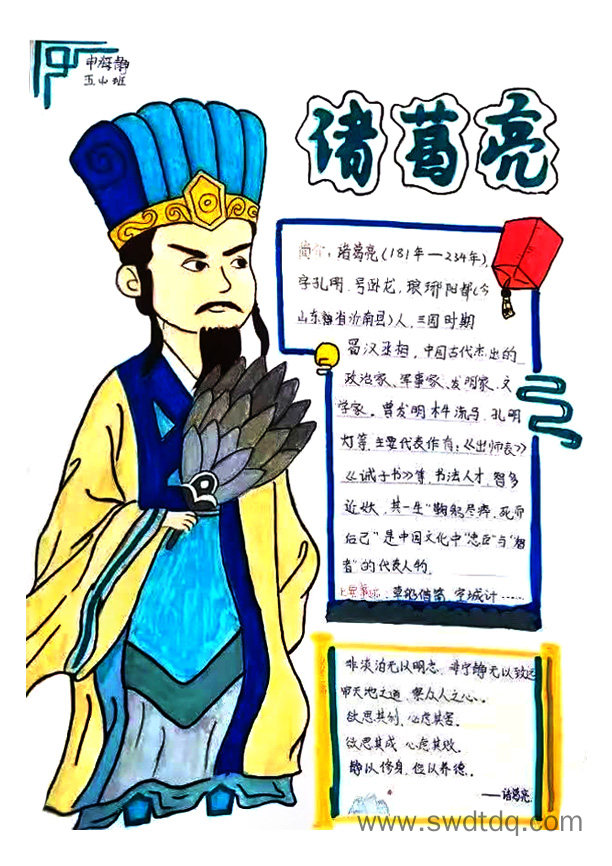 申海静
五(4)班
诸葛亮
简介:诸葛亮(181年—234年),
字孔明,号卧龙,琅琊阳都(今
山东省沂南县)人,三国时期
蜀汉丞相,中国古代杰出的
政治家、军事家、发明家、文
学家。曾发明木牛流马、孔明
灯等,主要代表作有:《出师表》
《诫子书》等,书法人才,智多
近妖,其一生"鞠躬尽瘁,死而
后己"是中国文化中"忠臣"与"智
者"的代表人物。
草船借箭,空城计……
非淡泊无以明志,非宁静无以致远
甲天地之道,察众人之心。
欲思其利,必虑其害。
欲思其成,必虑其败。
静以修身,俭以养德。
——诸葛亮
www.swdtdq.com